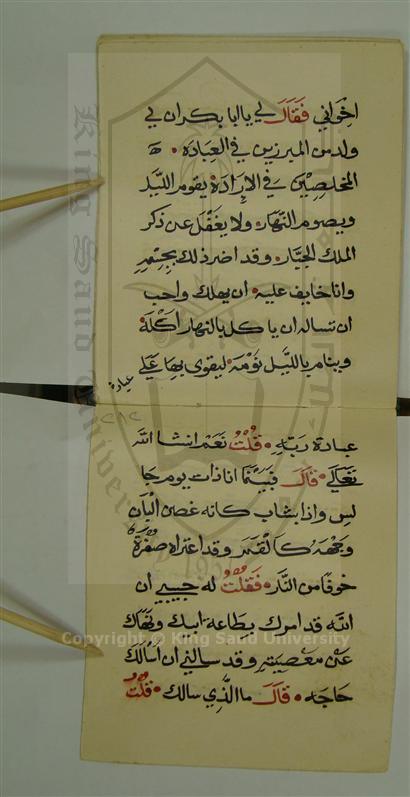 اخواني فَقَالَ لي يا ابا بكر ان لي
ولد من المبرزين في العبادة ه
المخلصين في الارادة يقوم الليل
ويصوم النهار ولا يغفل عن ذكر
الملك الجبار وقد اضر ذلك بجسمه
وانا خايف عليه ان يهلك واحب
ان تساله ان ياكل بالنهار اكلة
وينام بالليل نومة ليقوى بها على
عبادة
٢١٢
عبادة ربه قُلْتُ نعم انشا الله
تعالى قال فبينما انا ذات يوم جا
لس واذا بشاب كانه غصن البان
وجهه كالقمر وقد اعتراه صفرة
خوفا من النار فقلت له حبيبي ان
الله قد امرك بطاعة ابيك ونهاك
عن معصيته وقد سالني ان أسالك
حاجه قال ما الذي سالك قلت
Copyright © King Saud University
King Saud University